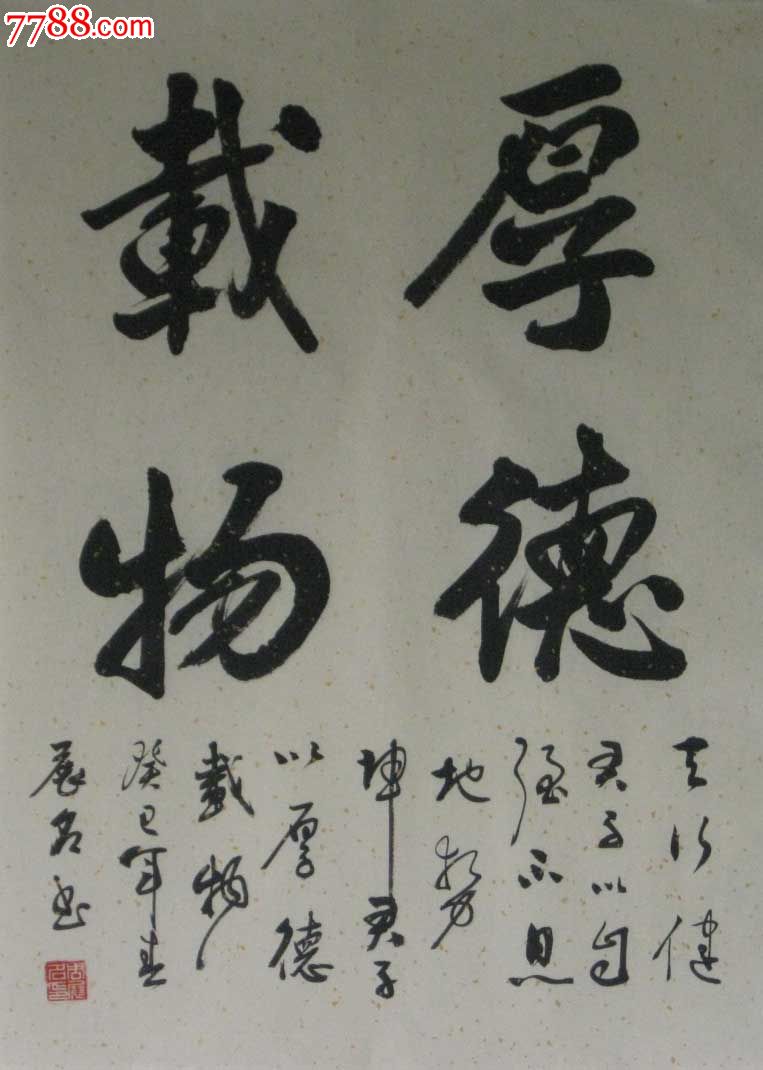 7788.com
厚德
載物
天行健
君子以自
強不息
地勢
坤君子
以厚德
載物
癸巳年春
展名书